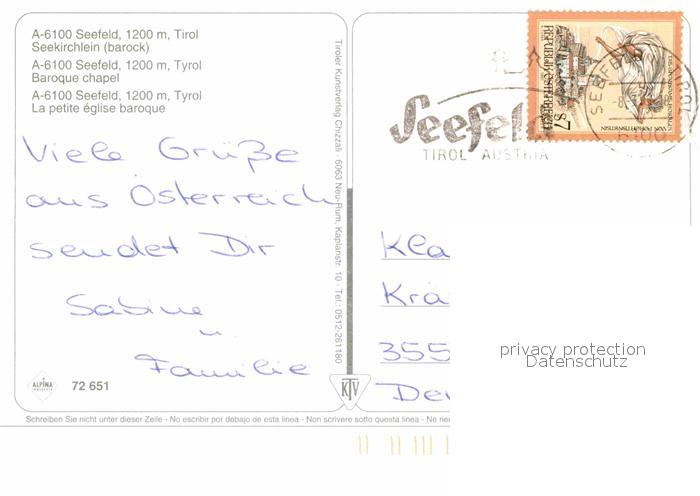 A-6100 Seefeld, 1200 m, Tirol
Seekirchlein (barock)
A-6100 Seefeld, 1200 m, Tyrol
Baroque chapel
A-6100 Seefeld, 1200 m, Tyrol
La petite église baroque
Viele Grüße
aus Österreich
sendet Dir
Sabine
u.
Familie
ALPINA
72 651
Tiroler Kunstverlag Chizzali · 6063 Neu-Rum, Kaplanstr. 10 · Tel.: 0512-261180
KTV
Seefeld
TIROL AUSTRIA
REPUBLIK ÖSTERREICH
S7
SEEFELD TIROL
Kla
Krä
355
De
privacy protection
Datenschutz
Schreiben Sie nicht unter dieser Zeile - No escribir por debajo de esta linea - Non scrivere sotto questa linea - Ne